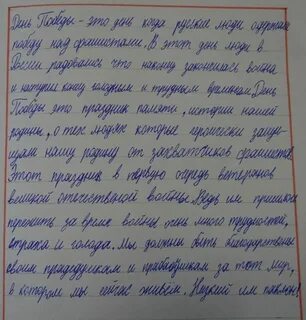 День Победы - это день когда русские люди одержали
победу над фашистами. В этот день люди в
России радовались что наконец закончилась война
и наступил конец голодным и трудным временам. День
Победы это праздник памяти, истории нашей
родины, о тех людях которые героически защи-
щали нашу родину от захватчиков фашистов.
Этот праздник в первую очередь ветеранов
великой отечественой войны. Ведь им пришлось
пережить за время войны очень много трудностей,
страха и голода. Мы должны быть благодарными
своим прадедушкам и прабабушкам за тот мир,
в котором мы сейчас живём. Низкий им поклон!